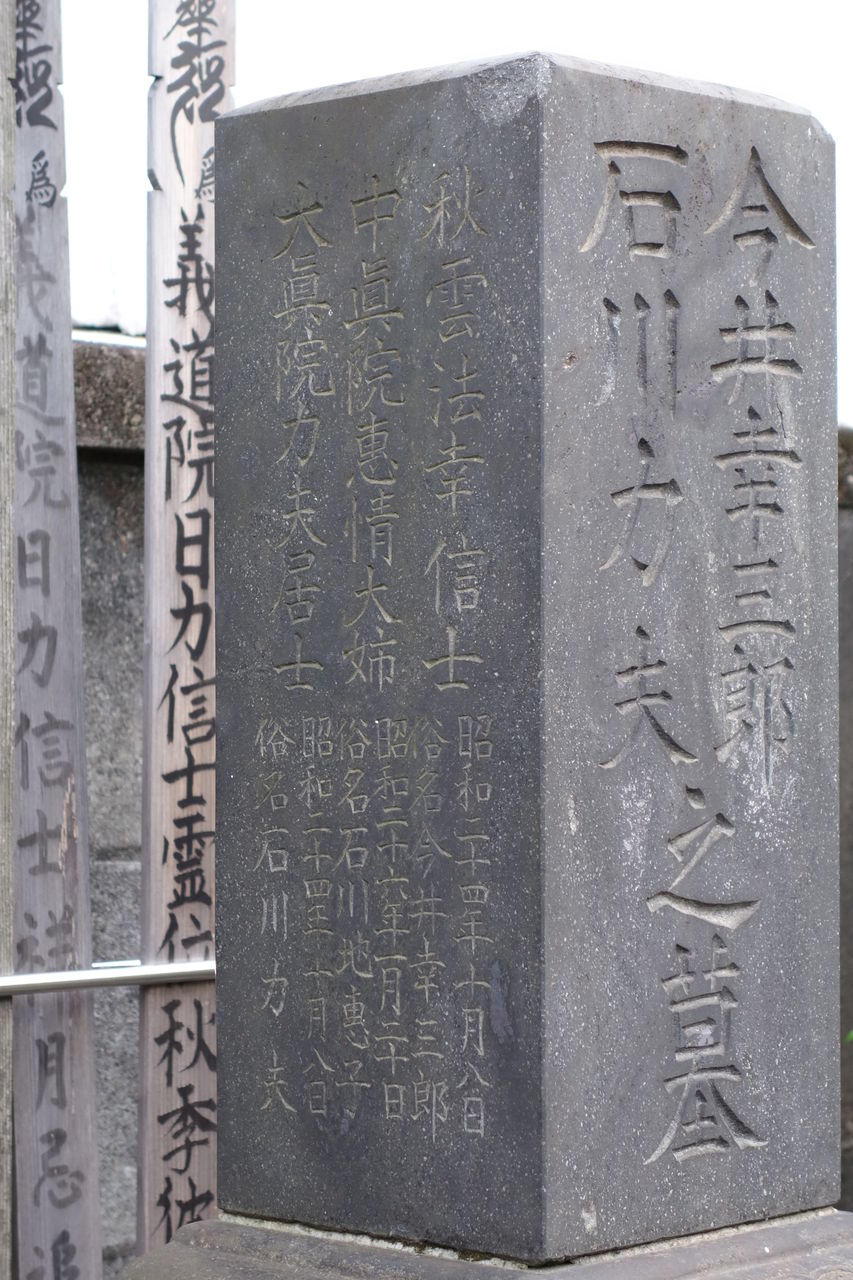 今井幸三郎
石川力夫
之墓
秋雲法幸信士
昭和二十四年十月八日
俗名今井幸三郎
中眞院惠情大姉
昭和二十六年一月二十日
俗名石川地惠子
大眞院力夫居士
昭和二十四年十月八日
俗名石川力夫
為義道院日力信士霊位秋季彼
為義道院日力信士祥月忌追